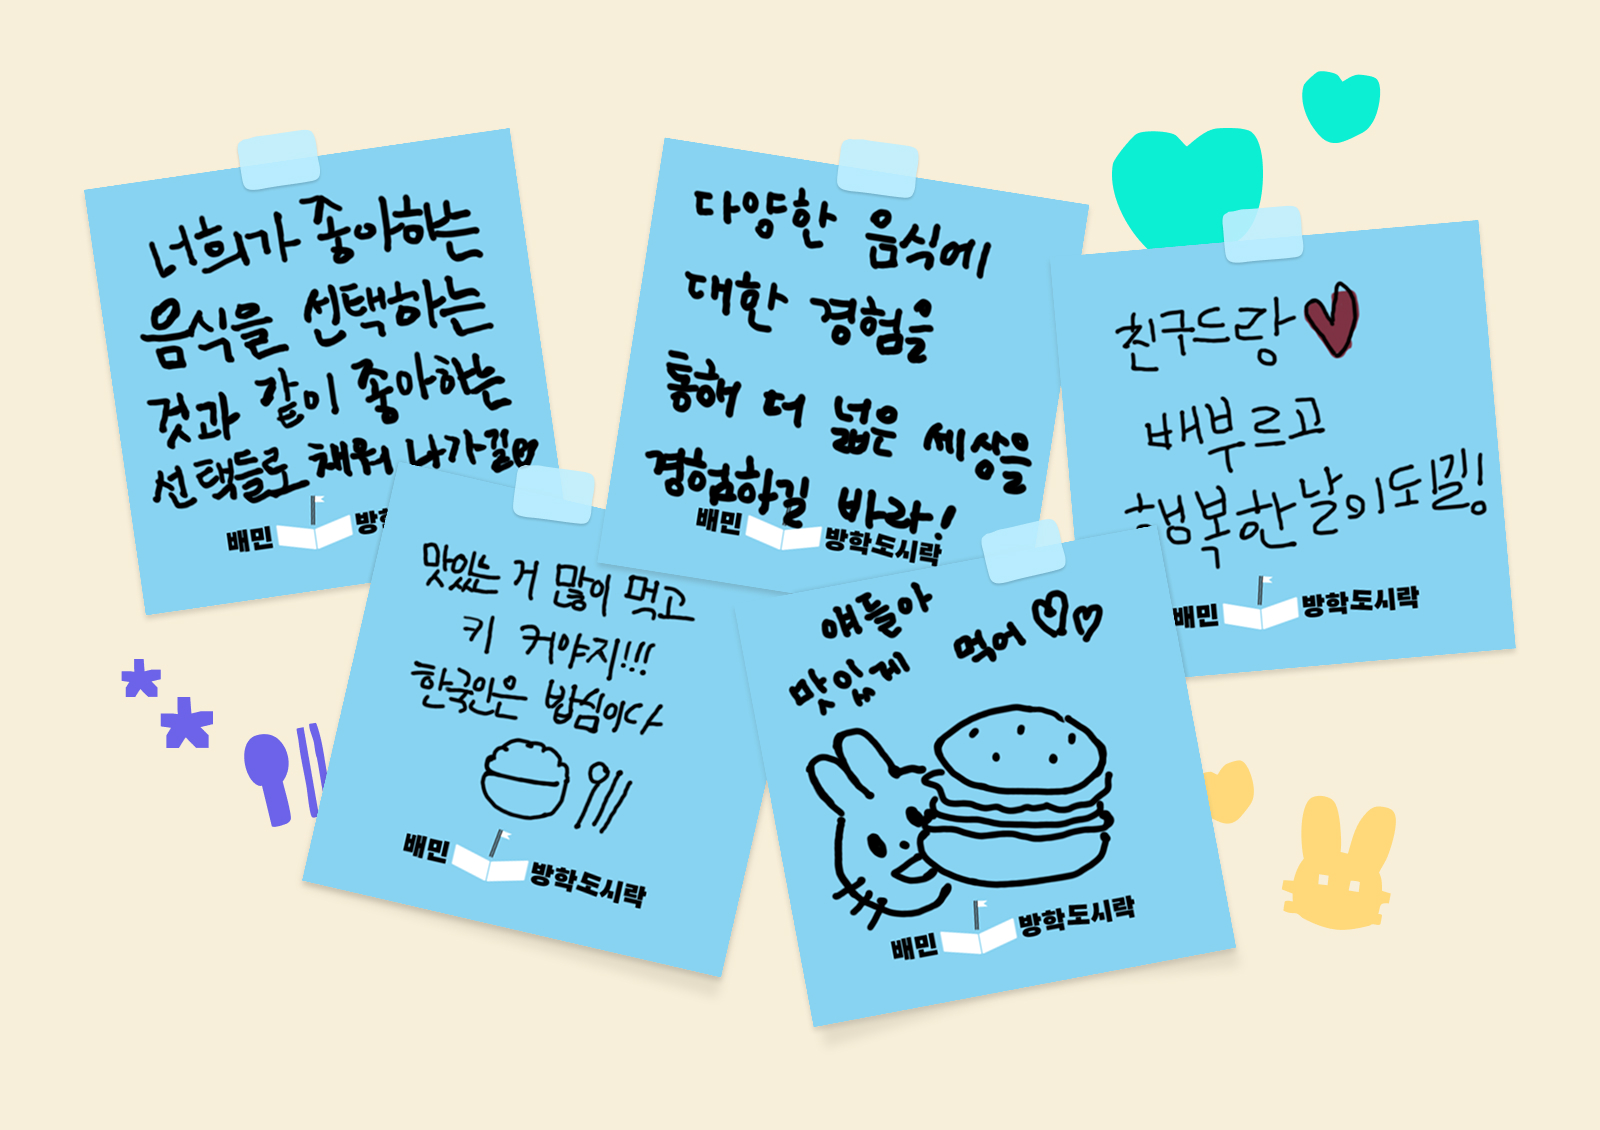 너희가 좋아하는
음식을 선택하는
것과 같이 좋아하는
선택들로 채워 나가길
배민 방학
다양한 음식에
대한 경험을
통해 더 넓은 세상을
경험하길 바라!
배민 방학도시락
친구드랑
배부르고
행복한 날이되길!
배민 방학도시락
맛있는 거 많이 먹고
키 커야지!!!
한국인은 밥심이다
배민 방학도시락
얘들아
맛있게 먹어
배민 방학도시락